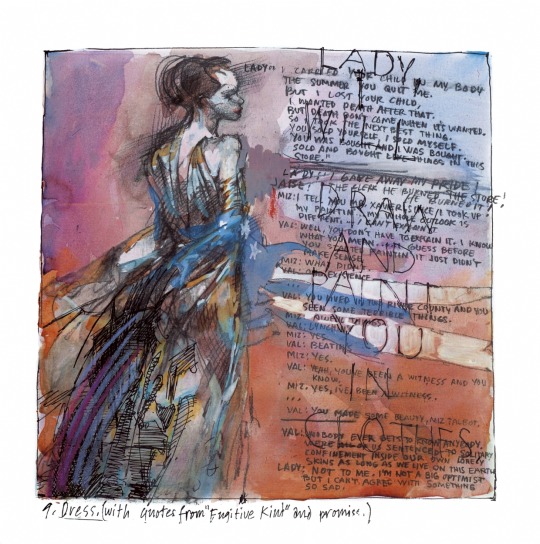 LADY
I
WILL
TRY
AND
PAINT
YOU
IN
CLOTHES
LADY: I CARRIED YOUR CHILD IN MY BODY
THE SUMMER YOU QUIT ME.
BUT I LOST YOUR CHILD,
I WANTED DEATH AFTER THAT.
BUT DEATH DON'T COME WHEN IT'S WANTED.
SO I TOOK THE NEXT BEST THING.
YOU SOLD YOURSELF, I SOLD MYSELF.
YOU WAS BOUGHT AND I WAS BOUGHT.
SOLD AND BOUGHT LIKE THINGS IN THIS
STORE."
LADY: I GAVE AWAY MY PRIDE!
THE CLERK HE BURNED THE STORE!
HE BURNED IT!
MIZ: I TELL YOU SINCE I TOOK UP
MY PAINTIN' MY WHOLE OUTLOOK IS
DIFFERENT. I CAN'T EXPLAIN
VAL: WELL, YOU DON'T HAVE TO EXPLAIN IT. I KNOW
WHAT YOU MEAN. I GUESS BEFORE
YOU STARTED PAINTIN' IT JUST DIDN'T
MAKE SENSE.
MIZ: WHAT DIDN'T
VAL: EXISTENCE
...
VAL: YOU LIVED IN RIVER COUNTY AND YOU
SEEN SOME TERRIBLE THINGS.
MIZ:
VAL: LYNCH
MIZ: YES
VAL: BEATIN
MIZ: YES.
VAL: YEAH, YOU'VE BEEN A WITNESS AND YOU
KNOW.
MIZ. YES, I'VE BEEN A WITNESS.
...
VAL: YOU MADE SOME BEAUTY, MIZ TALBOT.
VAL: NOBODY EVER GETS TO KNOW ANYBODY.
WE'RE ALL OF US SENTENCED TO SOLITARY
CONFINEMENT INSIDE OUR OWN LONELY
SKINS AS LONG AS WE LIVE ON THIS EARTH
LADY: NOT TO ME. I'M NOT A BIG OPTIMIST
BUT I CAN'T AGREE WITH SOMETHING
SO SAD.
9. Dress. (with quotes from "Fugitive Kind" and promise.)